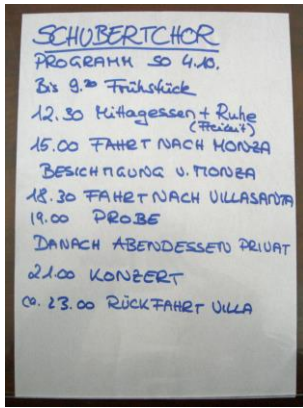 SCHUBERTCHOR
PROGRAMM SO 4.10.
Bis 9.30 Frühstück
12.30 Mittagessen + Ruhe
(Freizeit)
15.00 FAHRT NACH MONZA
BESICHTIGUNG V. MONZA
18.30 FAHRT NACH VILLASANTA
19.00 PROBE
DANACH ABENDESSEN PRIVAT
21.00 KONZERT
ca. 23.00 RÜCKFAHRT VILLA